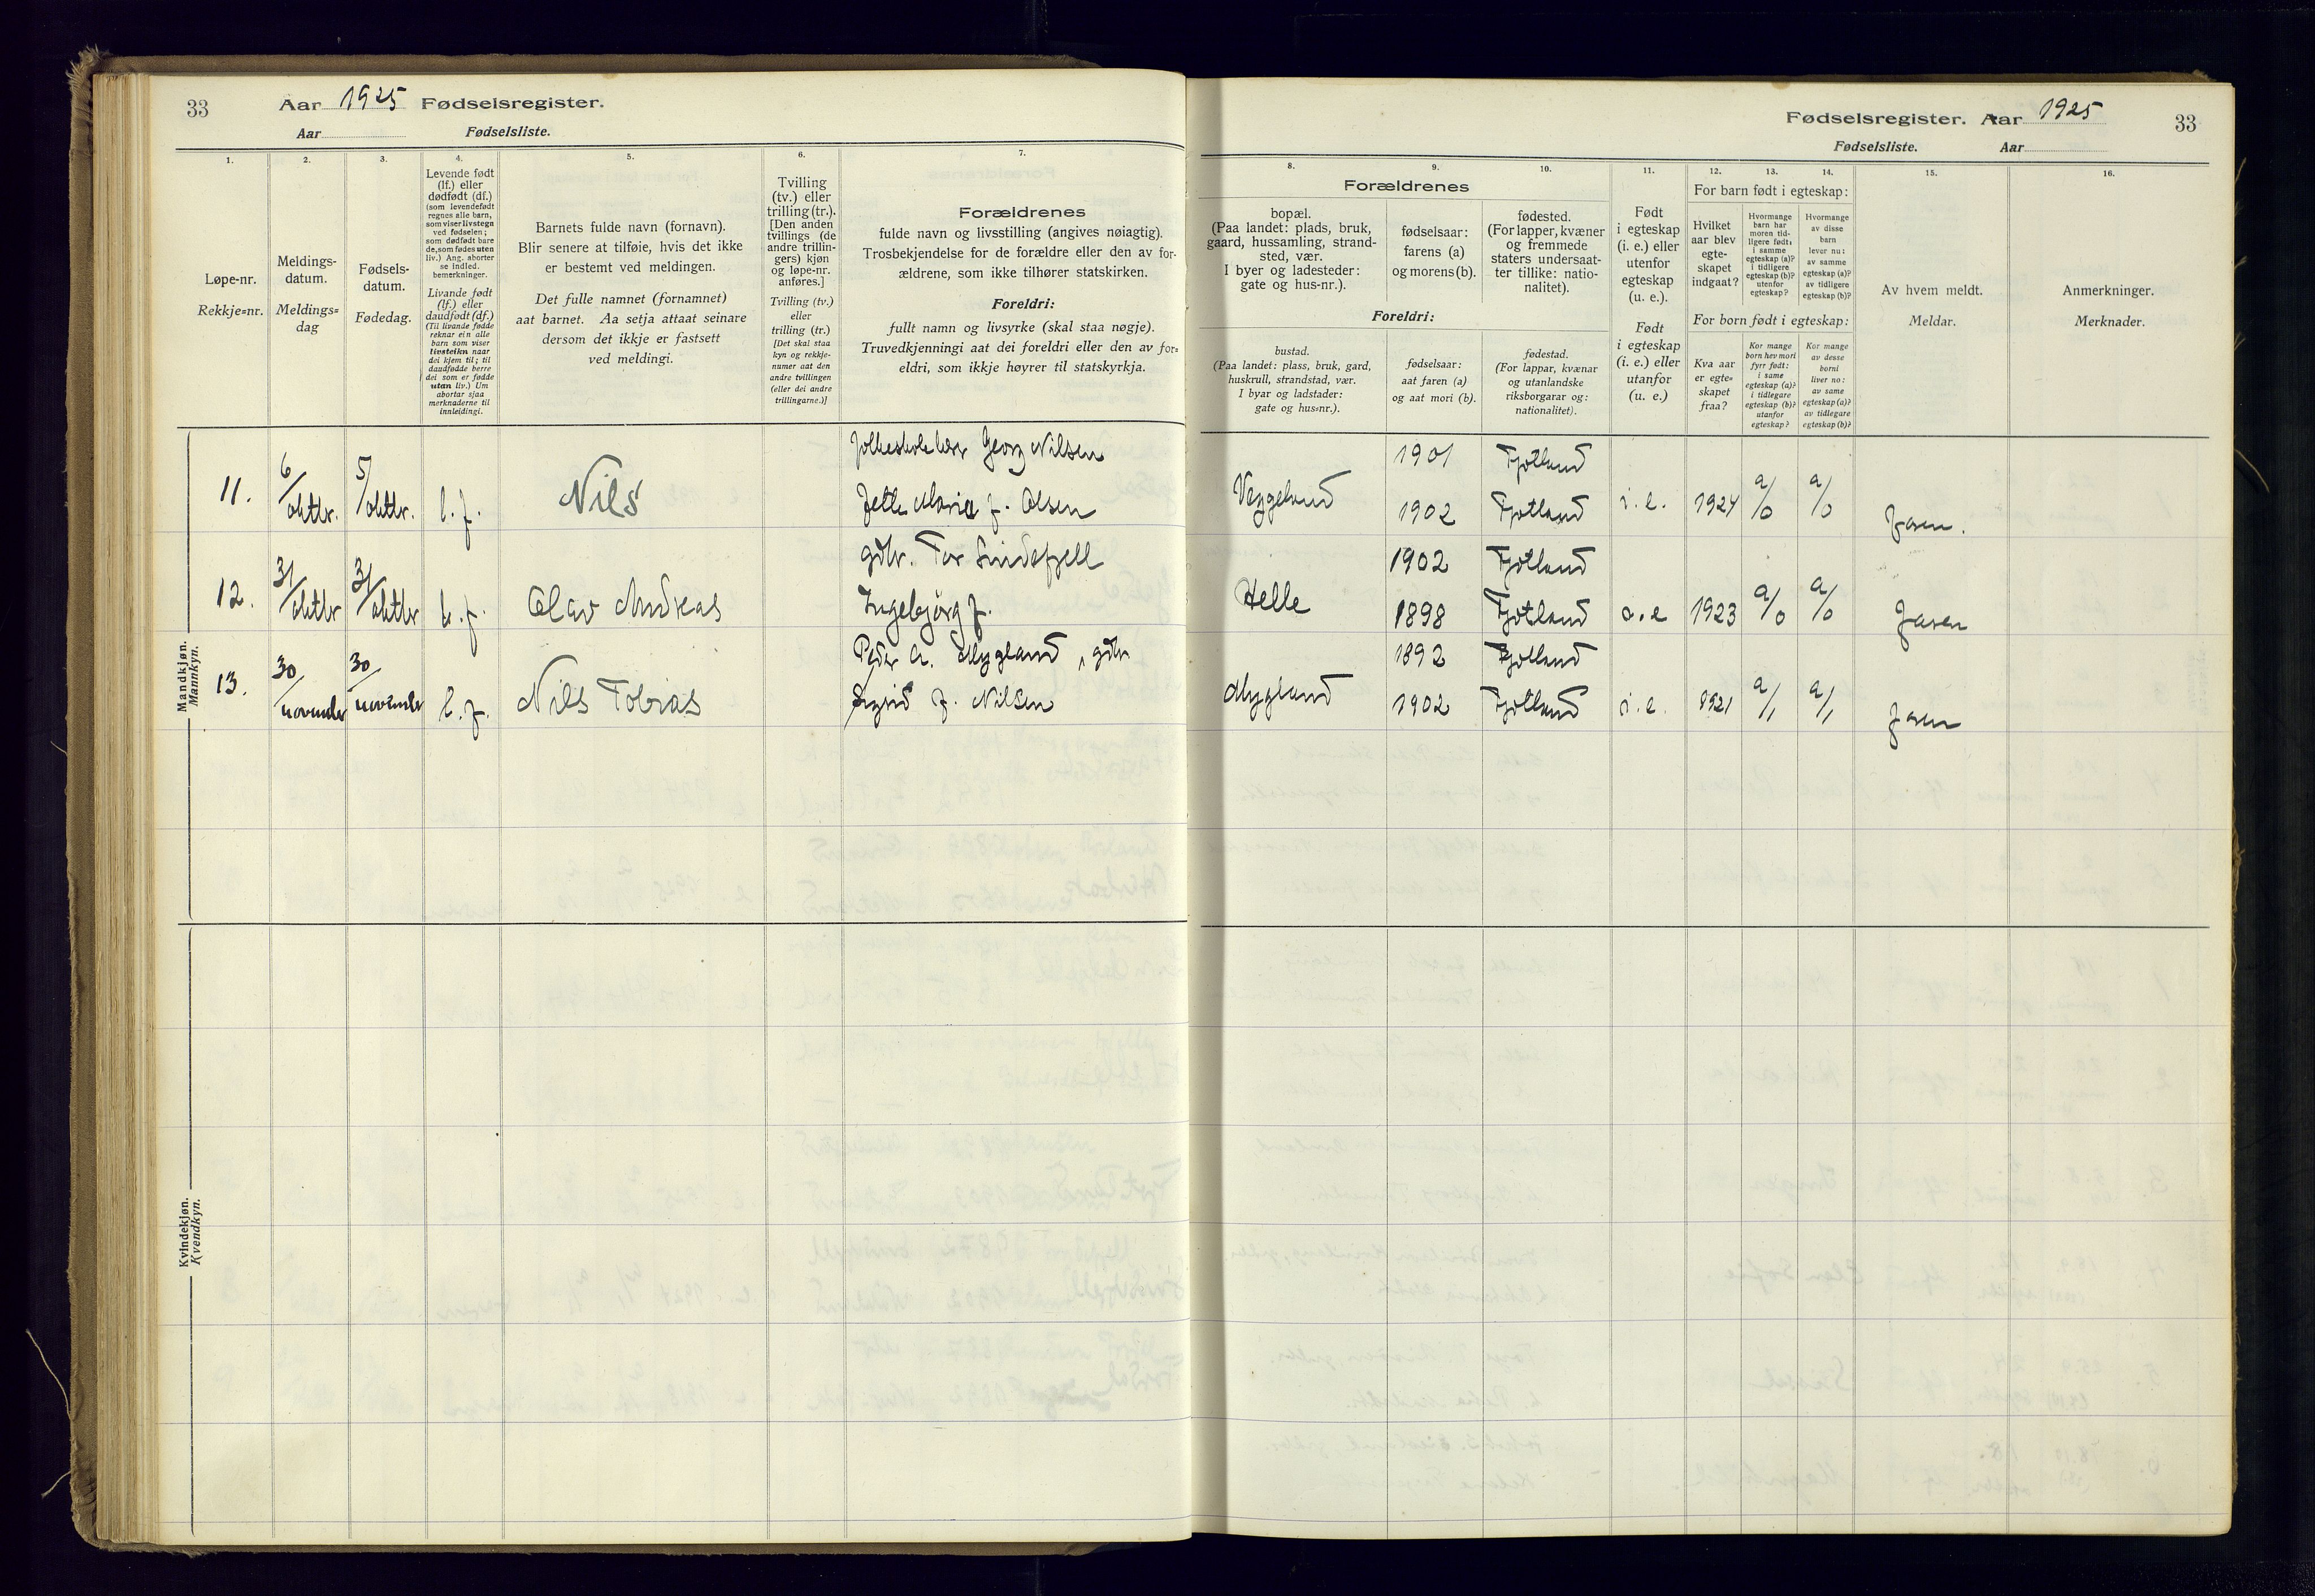 33
Aar 1925 Fødselsregister.
Aar Fødselsliste.
1.
2.
3.
4.
5.
6.
7.
Løpe-nr.
Rekkje=nr.
Meldings-
datum.
Meldings=
dag
Fødsels-
datum.
Fødedag.
Levende født
(lf.) eller
dødfødt (df.)
(som levendefødt
regnes alle barn,
som viser livstegn
ved fødselen;
som dødfødt bare
de, som fødes uten
liv.) Ang. aborter
se indled.
bemerkninger.
Livande født
(lf.) eller
daudfødt (df.)
(Til livande fødde
reknar ein alle
barn som viser
livsteikn naar
dei kjem til; til
daudfødde berre
dei som er fødde
utan liv.) Um
abortar sjaa
merknaderne til
innleidingi.
Barnets fulde navn (fornavn).
Blir senere at tilføie, hvis det ikke
er bestemt ved meldingen.
Det fulle namnet (fornamnet)
aat barnet. Aa setja attaat seinare
dersom det ikkje er fastsett
ved meldingi.
Tvilling
(tv.) eller
trilling (tr.).
[Den anden
tvillings (de
andre trillin-
gers) kjøn
og løpe-nr.
anføres.]
Tvilling (tv.)
eller
trilling (tr.)
[Det skal staa
kyn og rekkje-
numer aat den
andre tvillingen
(eller dei andre
trillingarne.)]
Forældrenes
fulde navn og livsstilling (angives nøiagtig).
Trosbekjendelse for de forældre eller den av for-
ældrene, som ikke tilhører statskirken.
Foreldri:
fullt namn og livsyrke (skal staa nøgje).
Truvedkjenningi aat dei foreldri eller den av for=
eldri, som ikkje høyrer til statskyrkja.
Mandkjøn.
Mannkyn.
11. 6/oktbr. 5/oktbr. l.f. Nils
Georg Nilsen
Marie f. Olsen
12. 31/oktbr 31/oktbr l.f. Olav Andreas
gdbr. Tor Lindefjell
Ingebjørg f.
13. 30/november 30/november l.f. Nils Tobias
Peder A. Mygland, gdbr
Sigrid f. Nilsen
Kvindekjøn.
Kvendkyn.
Fødselsregister. Aar 1925
33
Fødselsliste. Aar
8.
9.
10.
11.
12.
13.
14.
15.
16.
Forældrenes
bopæl.
(Paa landet: plads, bruk,
gaard, hussamling, strand-
sted, vær.
I byer og ladesteder:
gate og hus-nr.).
fødselsaar:
farens (a)
og morens (b).
fødested.
(For lapper, kvæner
og fremmede
staters undersaat-
ter tillike: natio-
nalitet).
Foreldri:
bustad.
(Paa landet: plass, bruk, gard,
huskrull, strandstad, vær.
I byar og ladstader:
gate og hus=nr.).
fødselsaar:
aat faren (a)
og aat mori (b).
fødestad.
(For lappar, kvænar
og utanlandske
riksborgarar og:
nationalitet).
Født
i egteskap
(i. e.) eller
utenfor
egteskap
(u. e.).
Født
i egteskap
(i. e.) eller
utanfor
(u. e.)
For barn født i egteskap:
Hvilket
aar blev
egte-
skapet
indgaat?
Hvormange
barn har
moren tid-
ligere født:
i samme
egteskap (a)?
i tidligere
egteskap (b)?
utenfor
egteskap?
Hvormange
av disse
barn
lever nu:
av samme
egteskap (a)?
av tidligere
egteskap (b)?
For born født i egteskap:
Kva aar
er egte=
skapet
fraa?
Kor mange
born hev mori
fyrr født:
i same
egteskap (a)?
i tidlegare
egteskap (b)?
utanfor
egteskap?
Kor mange
av desse
borni
liver no:
av same
egteskap (a)?
av tidlegare
egteskap (b)?
Av hvem meldt.
Meldar.
Anmerkninger.
Merknader.
1901 Fjotland
Veggeland 1902 Fjotland i.e. 1924 a/0 a/0 faren.
1902 Fjotland
Helle 1898 Fjotland i.e 1923 a/0 a/0 faren
1892 Fjotland
Mygland 1902 Fjotland i.e. 1921 a/1 a/1 faren